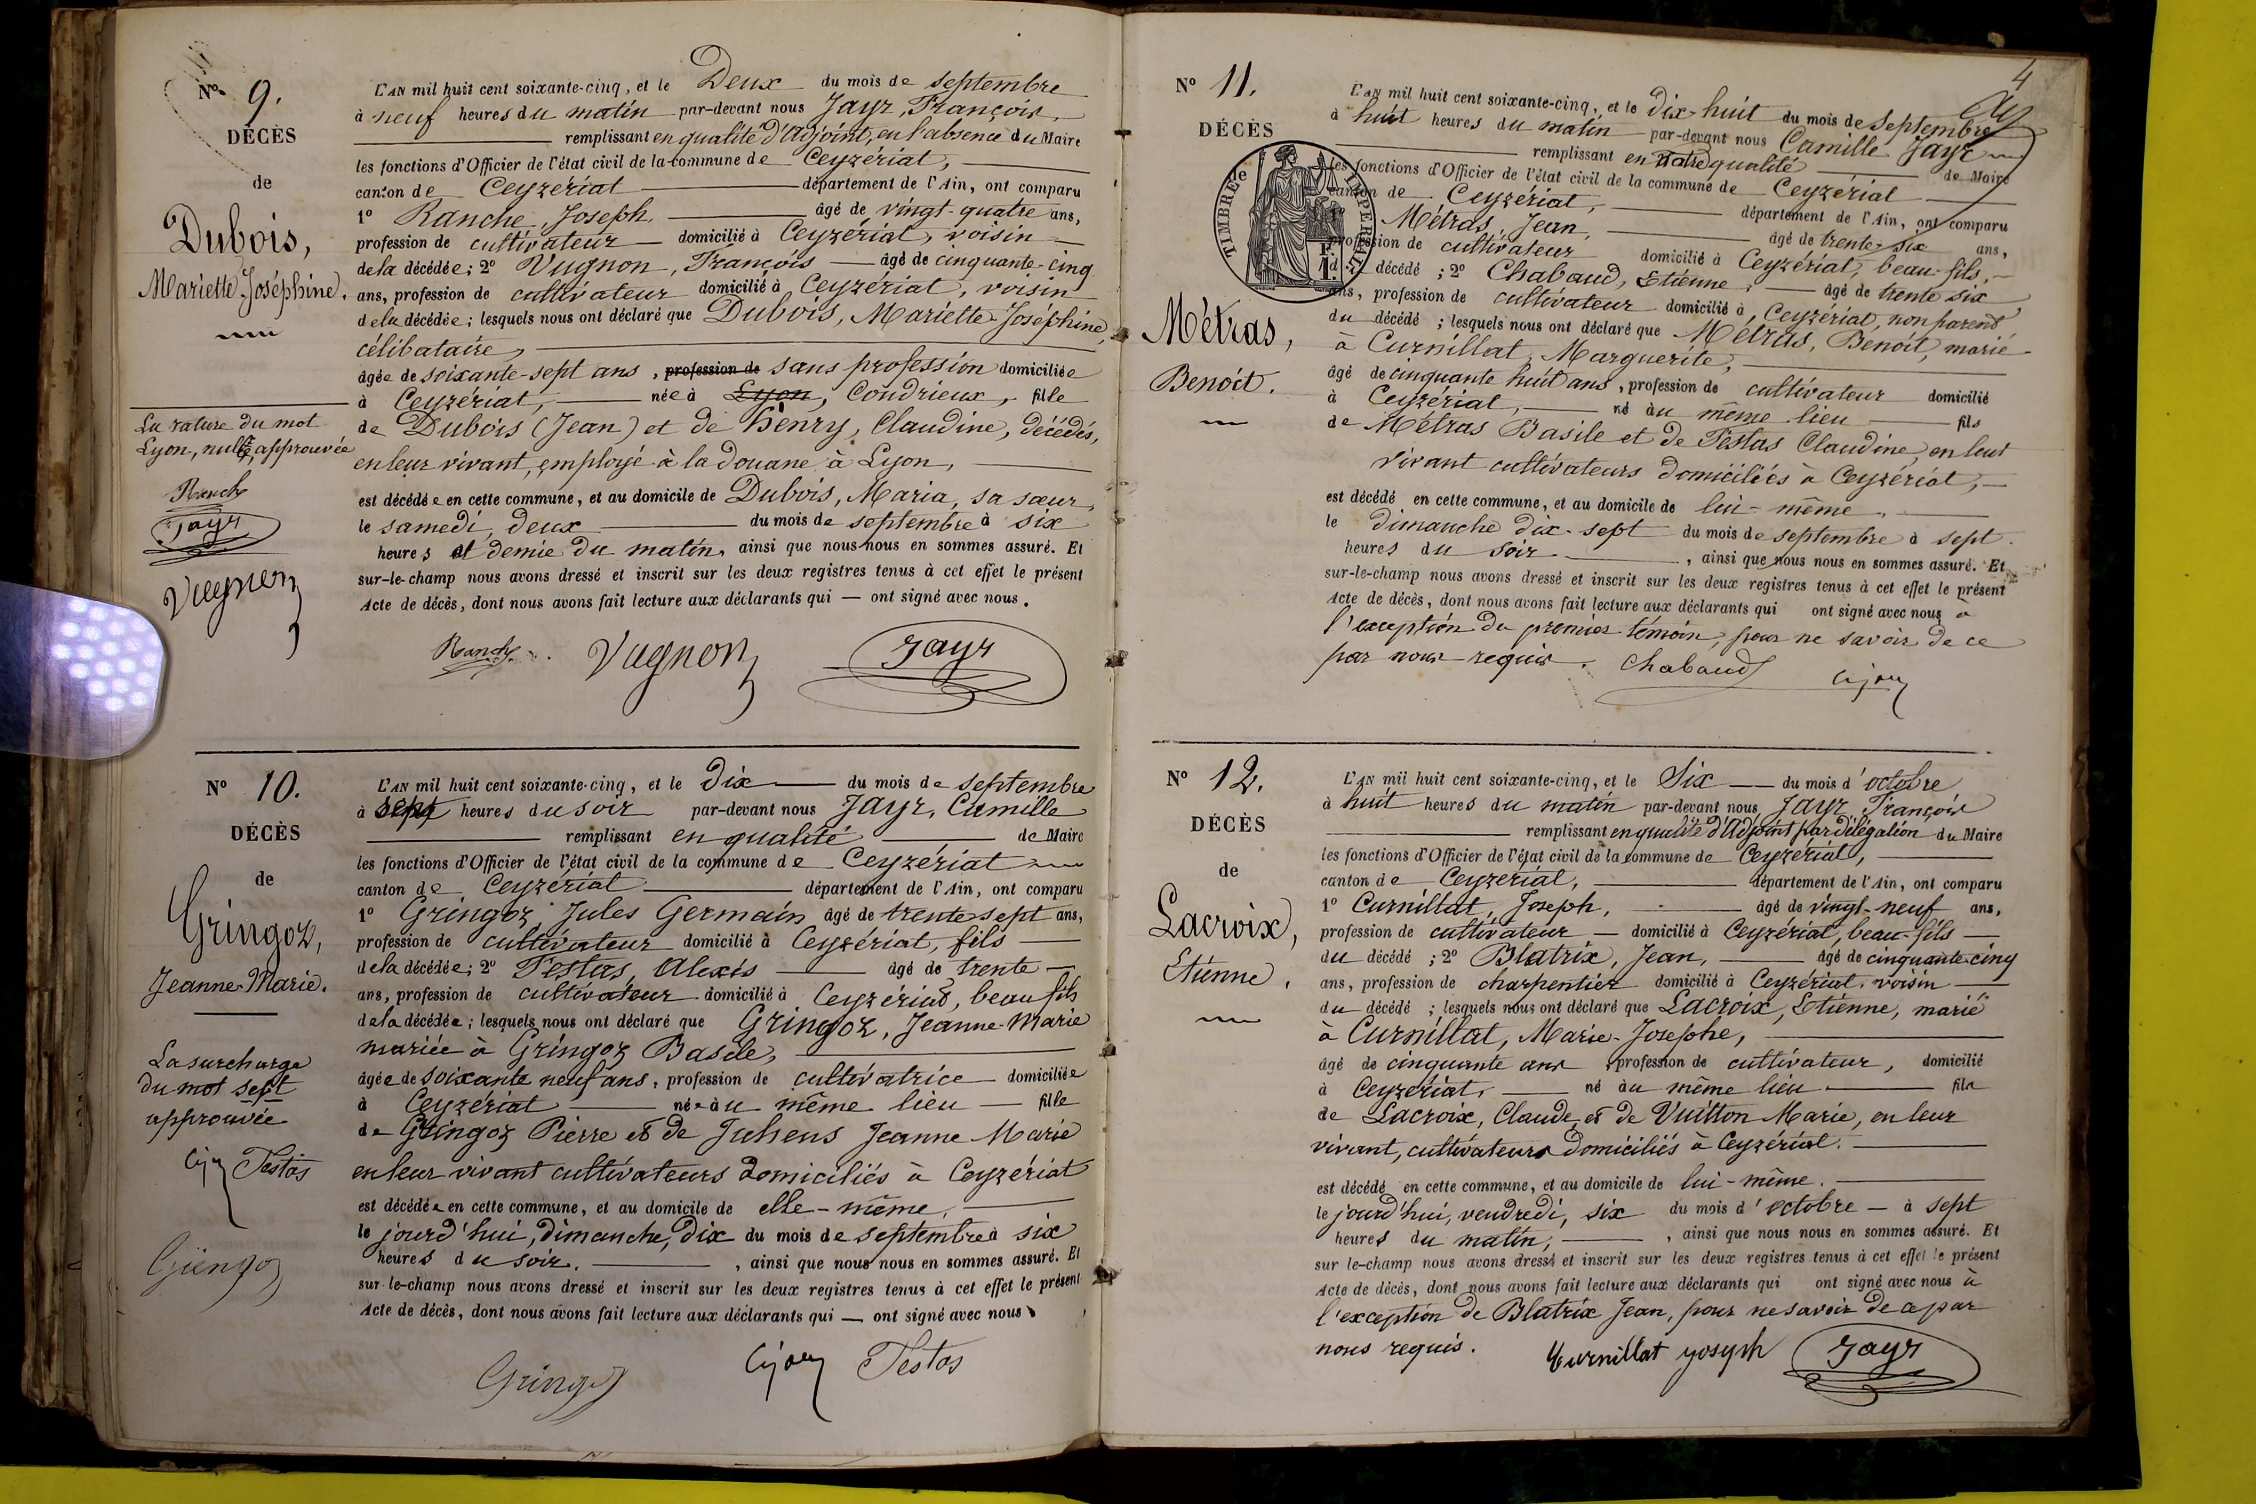 N° 9.
DÉCÈS
de
Dubois,
Mariette Joséphine.
La rature du mot
Lyon, nulle, approuvée
Ranche
Jayr
Vugnon
L'AN mil huit cent soixante-cinq, et le Deux du mois de septembre
à neuf heures du matin par-devant nous Jayr, François,
remplissant en qualité d'Adjoint, en l'absence du Maire
les fonctions d'Officier de l'état civil de la commune de Ceyzériat,
canton de Ceyzériat département de l'Ain, ont comparu
1° Ranche, Joseph, âgé de vingt-quatre ans,
profession de cultivateur domicilié à Ceyzériat, voisin
de la décédée; 2° Vugnon, François âgé de cinquante-cinq
ans, profession de cultivateur domicilié à Ceyzériat, voisin
de la décédée; lesquels nous ont déclaré que Dubois, Mariette-Joséphine,
célibataire,
âgée de soixante-sept ans, profession de sans profession domiciliée
à Ceyzériat, née à Lyon, Condrieux, fille
de Dubois (Jean) et de Henry, Claudine, décédés,
en leur vivant, employé à la douane à Lyon,
est décédée en cette commune, et au domicile de Dubois, Maria, sa sœur,
le samedi, deux du mois de septembre à six
heures et demie du matin, ainsi que nous nous en sommes assuré. Et
sur-le-champ nous avons dressé et inscrit sur les deux registres tenus à cet effet le présent
Acte de décès, dont nous avons fait lecture aux déclarants qui — ont signé avec nous.
Ranche Vugnon Jayr
N° 10.
DÉCÈS
de
Gringoz,
Jeanne-Marie.
La surcharge
du mot sept
approuvée
Testas
Gringoz
L'AN mil huit cent soixante-cinq, et le dix du mois de septembre
à sept heures du soir par-devant nous Jayr, Camille
remplissant en qualité de Maire
les fonctions d'Officier de l'état civil de la commune de Ceyzériat
canton de Ceyzériat département de l'Ain, ont comparu
1° Gringoz, Jules Germain âgé de trente sept ans,
profession de cultivateur domicilié à Ceyzériat, fils
de la décédée; 2° Testas, Alexis âgé de trente
ans, profession de cultivateur domicilié à Ceyzériat, beau fils
de la décédée; lesquels nous ont déclaré que Gringoz, Jeanne-Marie
mariée à Gringoz Basile,
âgée de soixante neuf ans, profession de cultivatrice domiciliée
à Ceyzériat née au même lieu fille
de Gringoz Pierre et de Juhens Jeanne Marie
en leur vivant cultivateurs domiciliés à Ceyzériat
est décédée en cette commune, et au domicile de elle-même,
le jourd'hui, dimanche, dix du mois de septembre à six
heures du soir. , ainsi que nous nous en sommes assuré. Et
sur-le-champ nous avons dressé et inscrit sur les deux registres tenus à cet effet le présent
Acte de décès, dont nous avons fait lecture aux déclarants qui — ont signé avec nous.
Gringoz Testas
4
N° 11.
DÉCÈS
de
TIMBRE IMPERIAL
Métras,
Benoît.
L'AN mil huit cent soixante-cinq, et le dix-huit du mois de septembre
à huit heures du matin par-devant nous Camille Jayr
remplissant en notre qualité de Maire
les fonctions d'Officier de l'état civil de la commune de Ceyzériat
canton de Ceyzériat, département de l'Ain, ont comparu
1° Métras, Jean, âgé de trente-six ans,
profession de cultivateur domicilié à Ceyzériat, beau-fils,
du décédé; 2° Chabaud, Etienne, âgé de trente six
ans, profession de cultivateur domicilié à Ceyzériat, non parent
du décédé; lesquels nous ont déclaré que Métras, Benoît, marié
à Curnillat, Marguerite,
âgé de cinquante huit ans, profession de cultivateur domicilié
à Ceyzériat, né au même lieu fils
de Métras Basile et de Testas Claudine, en leur
vivant cultivateurs domiciliés à Ceyzériat,
est décédé en cette commune, et au domicile de lui-même,
le dimanche dix-sept du mois de septembre à sept
heures du soir , ainsi que nous nous en sommes assuré. Et
sur-le-champ nous avons dressé et inscrit sur les deux registres tenus à cet effet le présent
Acte de décès, dont nous avons fait lecture aux déclarants qui ont signé avec nous à
l'exception du premier témoin, pour ne savoir de ce
par nous requis. Chabaud
N° 12.
DÉCÈS
de
Lacroix,
Etienne,
L'AN mil huit cent soixante-cinq, et le Six du mois d'octobre
à huit heures du matin par-devant nous Jayr, François
remplissant en qualité d'Adjoint par délégation du Maire
les fonctions d'Officier de l'état civil de la commune de Ceyzériat,
canton de Ceyzériat, département de l'Ain, ont comparu
1° Curnillat, Joseph, âgé de vingt-neuf ans,
profession de cultivateur — domicilié à Ceyzériat, beau-fils
du décédé; 2° Blatrix, Jean, âgé de cinquante-cinq
ans, profession de charpentier domicilié à Ceyzériat, voisin
du décédé; lesquels nous ont déclaré que Lacroix, Etienne, marié
à Curnillat, Marie-Josephe,
âgé de cinquante ans profession de cultivateur, domicilié
à Ceyzériat, né au même lieu fils
de Lacroix, Claude, et de Vuitton Marie, en leur
vivant, cultivateurs domiciliés à Ceyzériat.
est décédé en cette commune, et au domicile de lui-même.
le jourd'hui, vendredi, six du mois d'octobre — à sept
heures du matin, , ainsi que nous nous en sommes assuré. Et
sur le-champ nous avons dressé et inscrit sur les deux registres tenus à cet effet le présent
Acte de décès, dont nous avons fait lecture aux déclarants qui ont signé avec nous à
l'exception de Blatrix Jean, pour ne savoir de ce par
nous requis. Curnillat yosyph Jayr